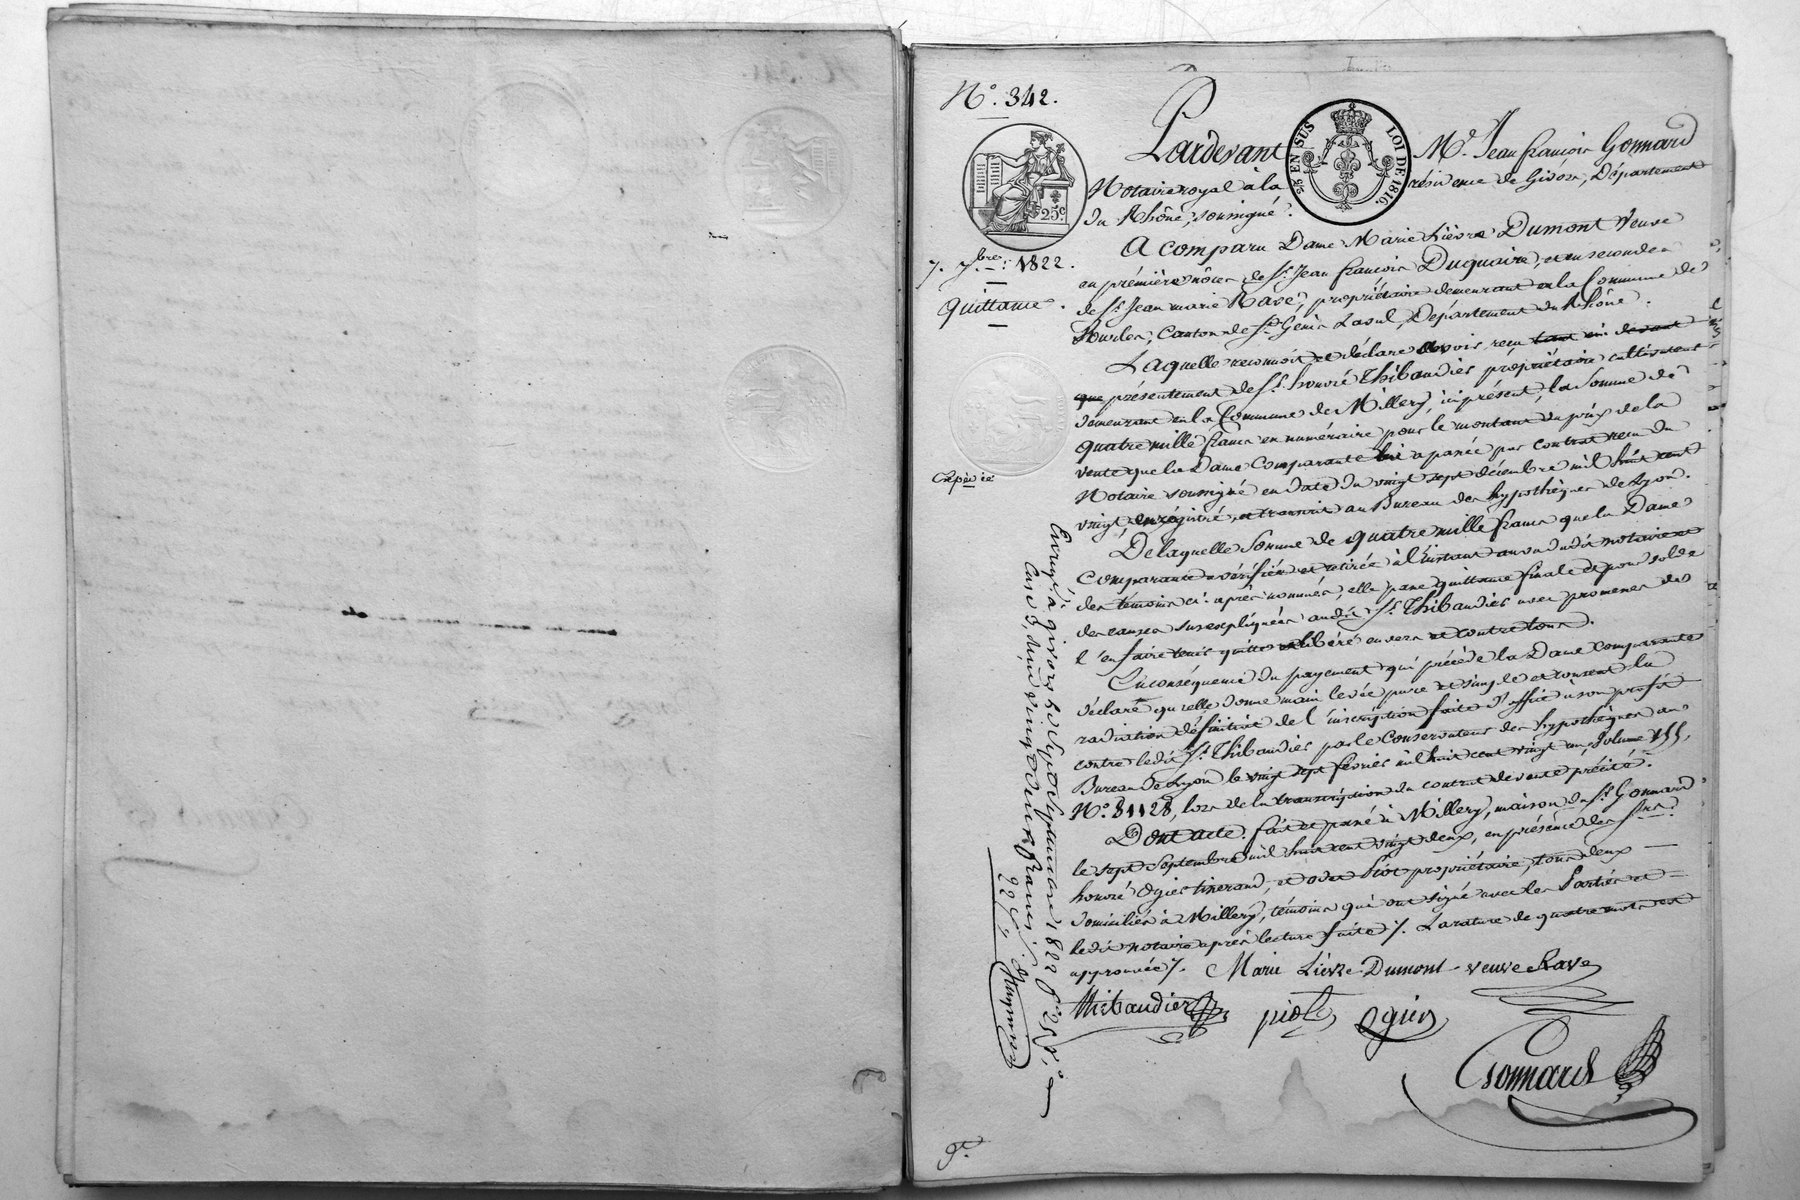 N.° 342.
Pardevant M.e Jean françois Gonnard
25 EN SUS
LOI DE 1816.
Notaire royal à la résidence de Givors, Département
du Rhône, soussigné.
25c
7. 7bre 1822.
Quittance.
A comparu Dame Marie Lièvre Dumont Veuve
en prémières nôces de Sr. Jean françois Duquaire, et en secondes
de Sr. Jean marie Ravé, propriétaire demeurant en la Commune de
Vourles, Canton de St. Génis Laval, Département du Rhône.
Laquelle reconnoit et déclare avoir reçu tant ci-devant
que présentement de Sr. honoré Thibaudier propriétaire cultivateur
demeurant en la Commune de Millery, ici présent, la Somme de
quatre mille francs en numéraire pour le montant du prix de la
vente que la Dame Comparante lui a passée par contrat reçu du
Expédiée
Notaire soussigné en date du vingt sept décembre mil huit cent
vingt, enrégistré, et transcrit au Bureau des hypothèques de Lyon.
De laquelle Somme de quatre mille francs que la Dame
Comparante a vérifiée et retirée à l'instant au vu dudit notaire et
des témoins ci-après nommés, elle passe quittance finale et pour solde
des causes susexpliquées audit Sr. Thibaudier avec promesse de
l'en faire tenir quitte et libéré envers et contre tous.
En conséquence du payement qui précède la Dame Comparante
déclare qu'elle donne main levée pure et simple et consent la
radiation définitive de l'inscription faite d'office à son profit
contre ledit Sr. Thibaudier par le Conservateur des hypothèques au
Bureau de Lyon le vingt sept février mil huit cent vingt un, Volume 155,
N.° 31128, lors de la transcription du contrat de vente précité.
Dont acte. fait et passé à Millery, maison du Sr. Gonnard
le sept Septembre mil huit cent vingt deux, en présence des Srs.
honoré Ogier tisserand, et Piot propriétaire, tous deux
domiciliés à Millery, témoins qui ont signé avec les Parties et
ledit notaire après lecture faite /. La rature de quatre mots est
approuvée /. Marie Lièvre Dumont veuve Ravé
Thibaudier piot Ogier
Gonnard
Enregé. à givors le Sept Septembre 1822 f° 25
Case 3, Reçu vingt deux francs
22 f